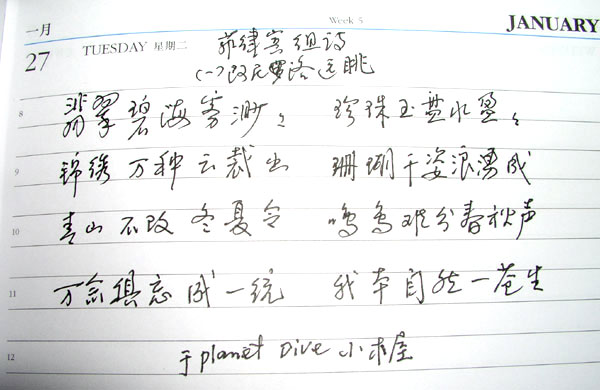 一月 Week 5 JANUARY
27 TUESDAY 星期二 菲律宾组诗
(一)改尼罗洛远眺
8 翡翠碧海雾渺々 珍珠玉盘水盈々
9 锦绣万种云裁出 珊瑚千姿浪涌成
10 青山不改冬夏令 鸣鸟难分春秋声
11 万念俱忘成一统 我本自然一苍生
12 于planet Dive 小木屋